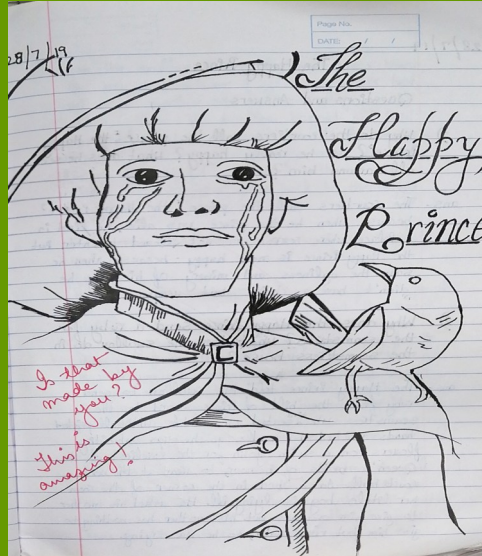 Page No.
DATE: / /
28/7/19
The
Happy
Prince
Is that
made by
you?
This is
amazing!